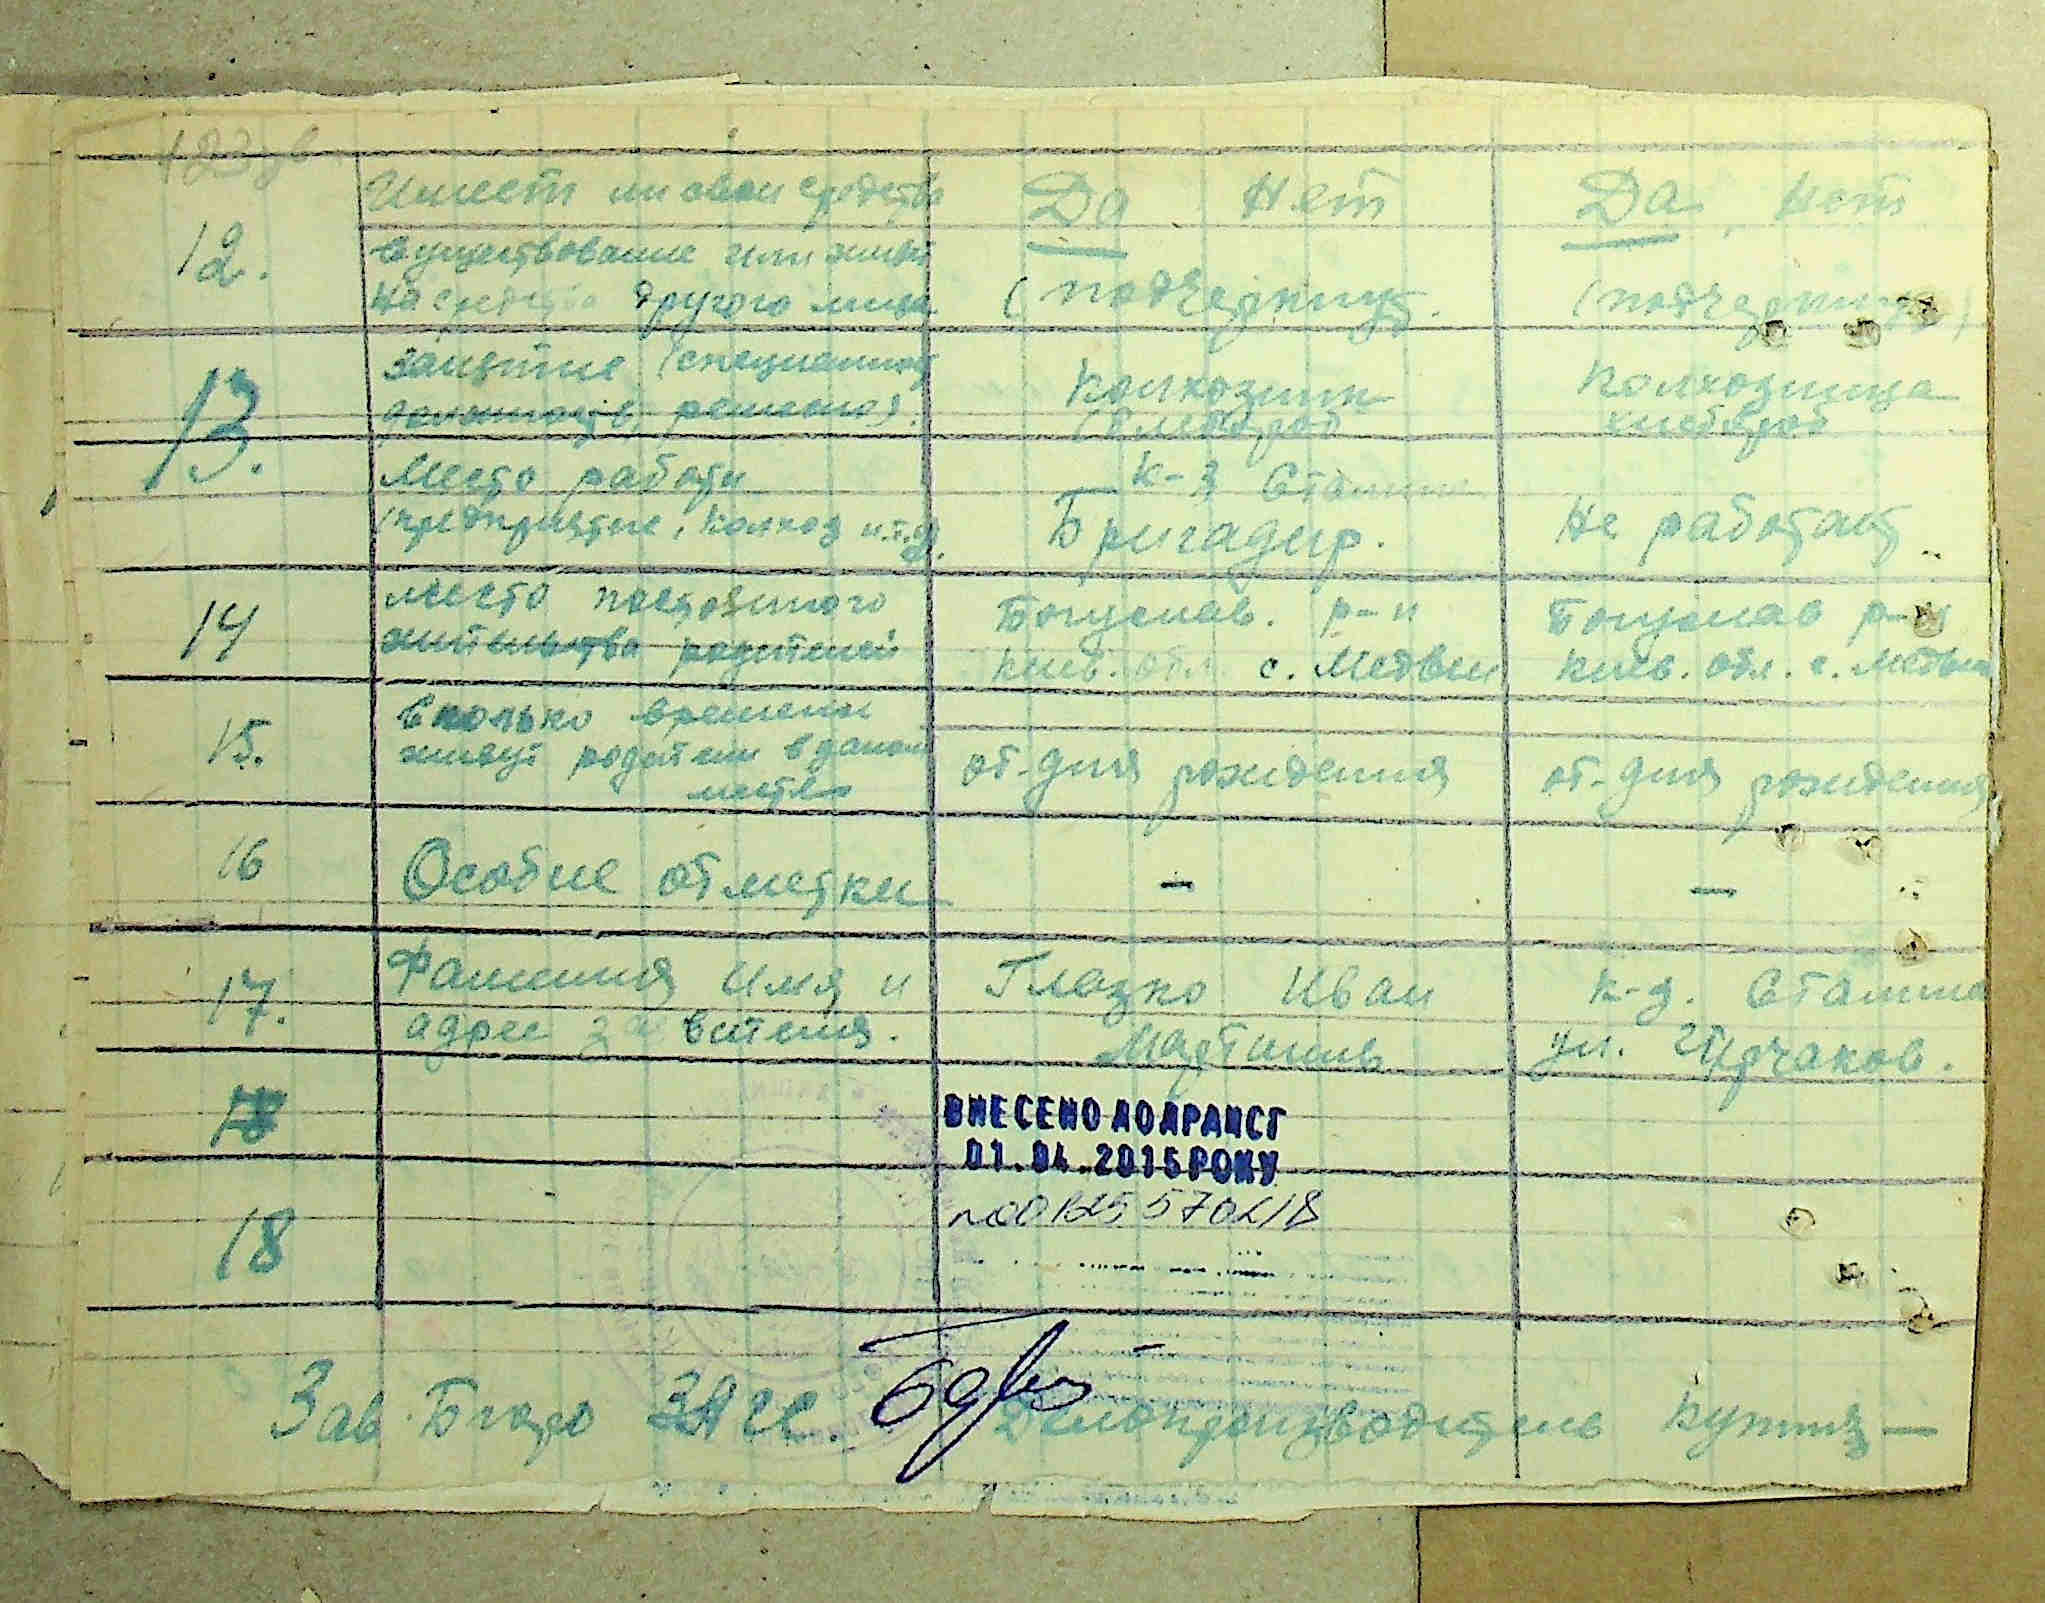 12.
Имеет ли свои средств
существование или живёт
на средства другого лица
Да Нет
(подчеркнут.
Да, нет
(подчеркнут)
13.
Занятие (специальность
должность, ремесло).
Колхозник
(хлебороб
Колхозница
хлебороб
Место работи
(предприятие, колхоз и.т.д.
к-з Сталина
Бригадир.
Не работает
14
Место постояного
жительства родителей
Богуслав. р-н
Киев. обл. с. Медвин
Богуслав р-н
Киев. обл. с. Медвин
15.
Сколько времени
живут родители в даном
месте
от-дня рождения
от-дня рождения
16
Особие отметки
–
–
17.
Фамилия Имя и
адрес заявителя.
Глазко Иван
к-з. Сталина
ул.
18
ВНЕСЕНО ДО ДРАЦСГ
01.04.2015 РОКУ
18
Зав. Бюро ЗАГС. Делопроизводитель